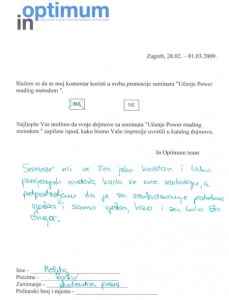 in optimum
Zagreb, 28.02. – 01.03.2009.
Slažem se da se moj komentar koristi u svrhu promocije seminara "Učenje Power
reading metodom" .
DA
NE
Najljepše Vas molimo da svoje dojmove sa seminara "Učenje Power reading
metodom " zapišete ispod, kako bismo Vaše impresije uvrstili u katalog dojmova.
In Optimum team
Seminar mi se čini jako koristan i lako
metoda kada se one savladaju, a
pretpostavljam da je za savladavanje potrebna
vježba i samo vježba, kao i za bilo što
drugo.
Ime –
Prezime –
Zanimanje – studentica prava
Poštanski broj i mjesto –